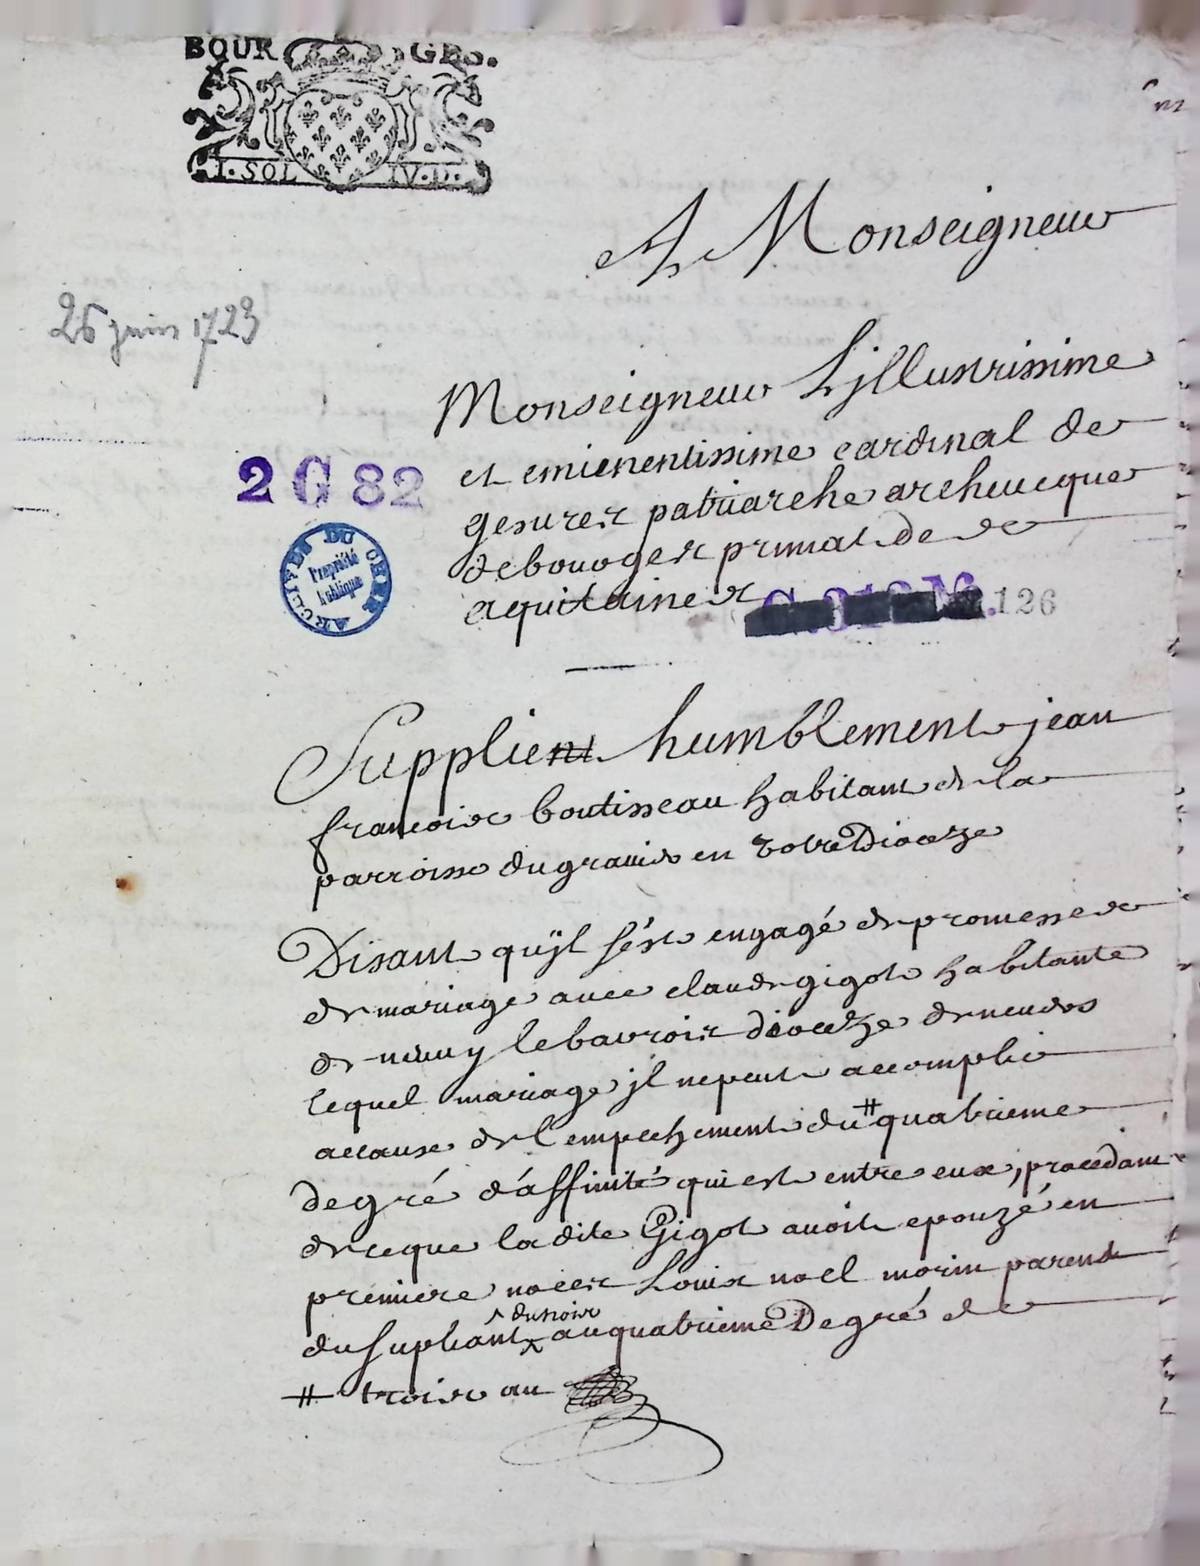 BOURGES.
I. SOL IV. D.
A Monseigneur
26 juin 1723
Monseigneur L'jllustrissime
et emienentissime cardinal de
gesures patriarche archeueque
de bourges primat de
aquitaines
2 G 82
ARCHIVES DU CHER
Propriété
Publique
126
Supplient humblement jean
francois boutisseau habitant de la
parroisse du gravis en votre Dioceze
Disant qu'jl s'est engagé de promesse
de mariage avec claude gigot habitante
de neuvy le barrois dioceze de nevers
lequel mariage jl ne peut accomplir
a cause de l'empechement du # quatrieme
degré d'affinité qui est entre eux, procedant
de ce que la dite Gigot avoit epouzé en
premiere noces Louis noel morin parent
du supliant ^ du trois au quatrieme Degré de
# trois au